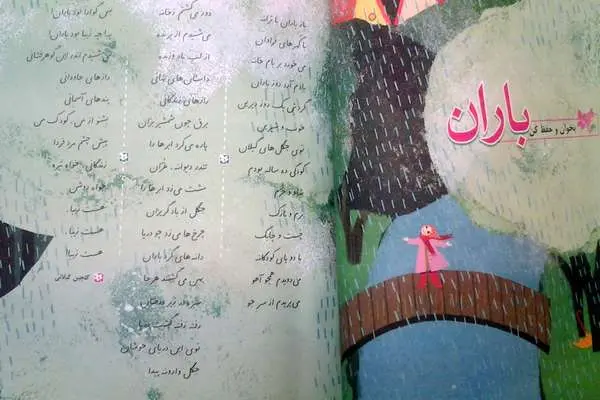 بخوان و حفظ کن
باران
باز باران با ترانه
با گهرهای فراوان
می خورد بر بام خانه
یادم آرد روز باران
گردش یک روز دیرین
خوب و شیرین
توی جنگل های گیلان
کودکی ده ساله بودم
شاد و خرم
نرم و نازک
چست و چابک
با دو پای کودکانه
می دویدم همچو آهو
می پریدم از سر جو
دور می گشتم ز خانه
می شنیدم از پرنده
از لب باد وزنده
داستان های نهانی
رازهای زندگانی
برق چون شمشیر بران
پاره می کرد ابرها را
تندر دیوانه، غران
مشت می زد ابرها را
جنگل از باد گریزان
چرخ ها می زد چو دریا
دانه های گرد باران
پهن می گشتند هر جا
سبزه در زیر درختان
رفته رفته گشت دریا
توی این دریای جوشان
جنگل وارونه پیدا
بس گوارا بود باران
به! چه زیبا بود باران!
می شنیدم اندر این گوهرفشانی
رازهای جاودانی
پندهای آسمانی
بشنو از من، کودک من
پیش چشم مرد فردا
زندگانی خواه تیره
خواه روشن
هست زیبا،
هست زیبا،
هست زیبا!
گلچین گیلانی